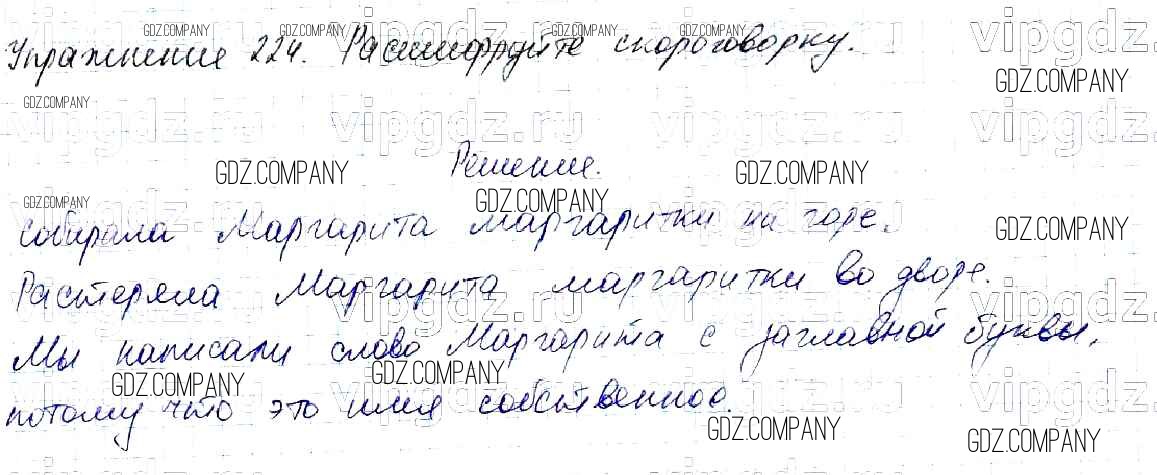 Упражнение 224. Расшифруйте скороговорку.
Решение.
Собирала Маргарита маргаритки на горе.
Растеряла Маргарита маргаритки во дворе.
Мы написали слово Маргарита с заглавной буквы,
потому что это имя собственное.
GDZ.COMPANY
vipgdz.ru